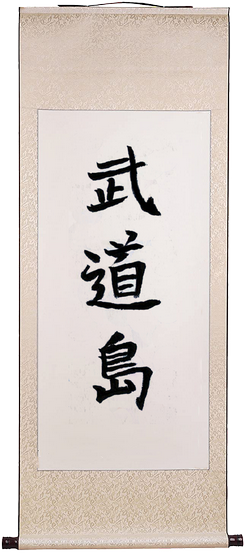 武道島